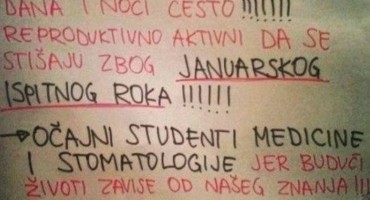 DANA I NOĆI ČESTO !!!!!!!
REPRODUKTIVNO AKTIVNI DA SE
STIŠAJU ZBOG JANUARSKOG
ISPITNOG ROKA !!!!!!
→OČAJNI STUDENTI MEDICINE
I STOMATOLOGIJE JER BUDUĆI
ŽIVOTI ZAVISE OD NAŠEG ZNANJA !!!